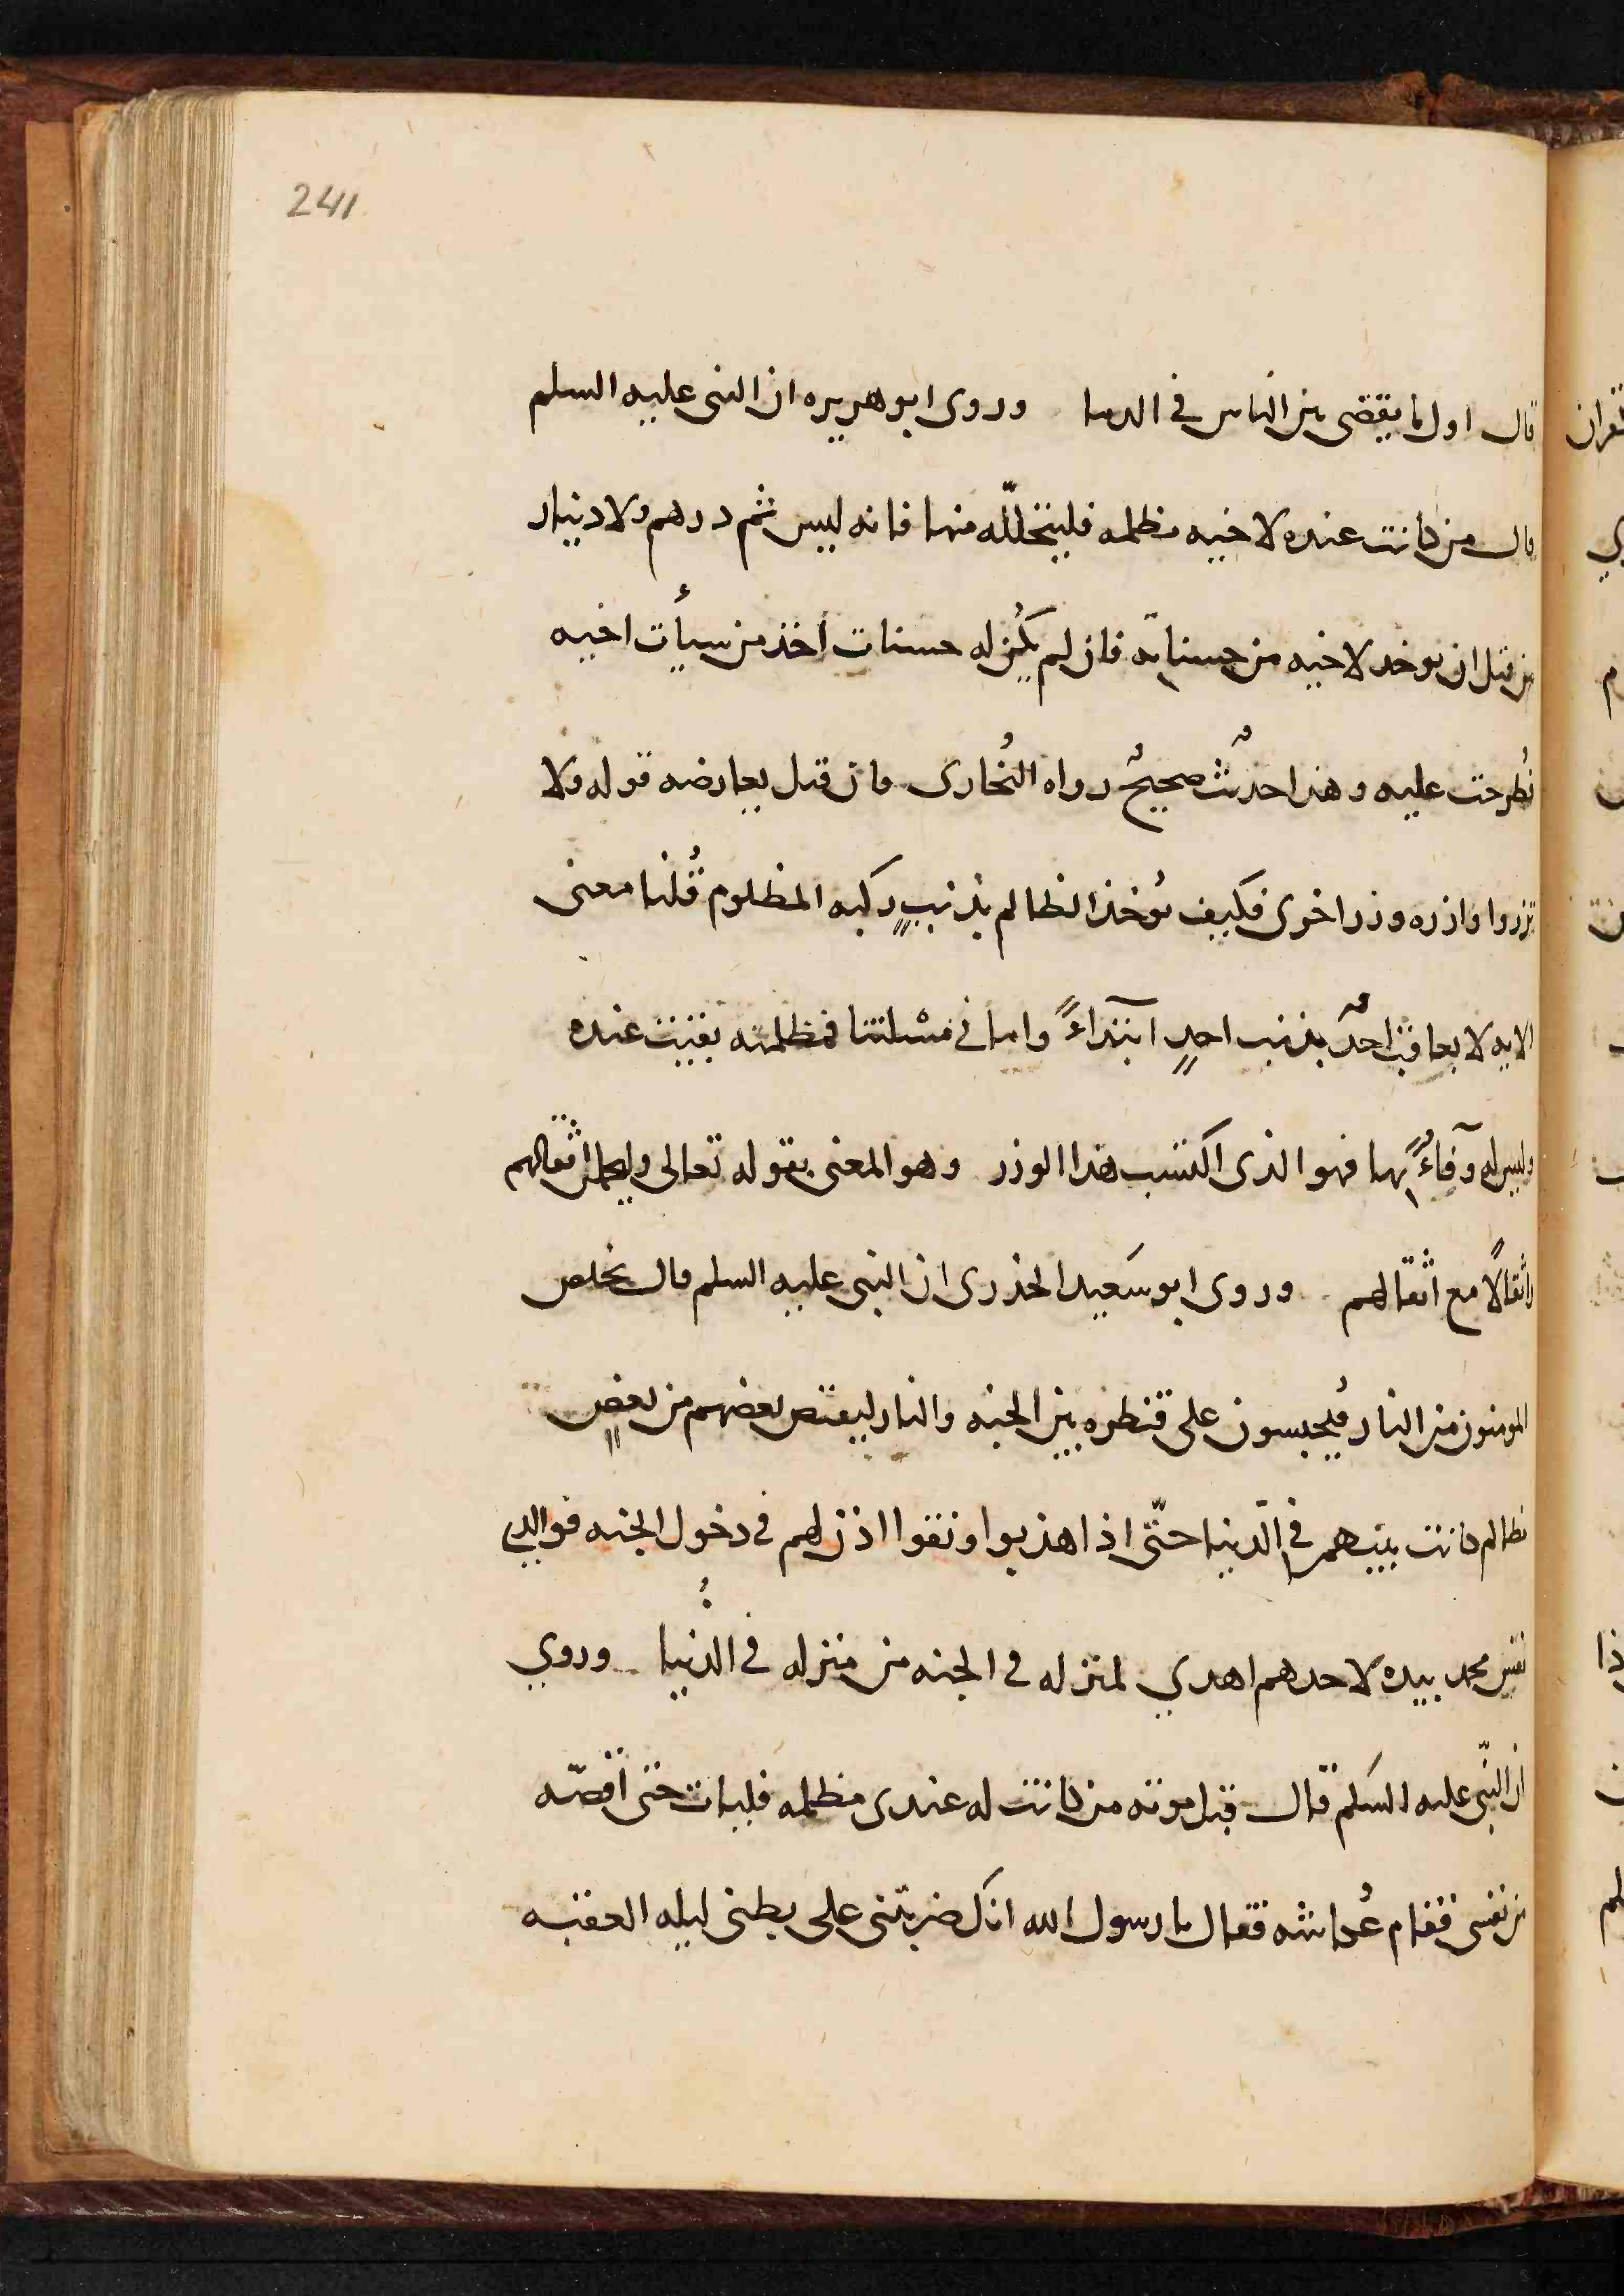 241
قال اول ما يقضى بين الناس في الدما وروى ابو هريره ان النبى عليه السلم
قال من كانت عنده لاخيه مظلمه فليتحلّله منها فانه ليس ثم درهم ولا دينار
من قبل ان يوخد لاخيه من حسناته فان لم يكُن له حسنات اُخذ من سيأت اخيه
فطُرحت عليه وهذا حديثٌ صحيحٌ رواه البُخارى فان قيل يعارضه قوله ولا
تزروا وازره وزر اخرى فكيف يُوخذ الظالم بذنبٍ ركبه المظلوم قُلنا معنى
الايه لا يعاقب احدٌ بذنب احدٍ ابتداءً واما في مسْلتنا فمظلمته بقيت عنده
وليس له وفاءٌ بها فهو الذى اكتسب هذا الوزر وهو المعنى بقوله تعالى وليحملن اثقالهم
واثقالًا مع اثقالهم وروى ابو سَعيد الخذرى ان النبى عليه السلم قال يخلص
المومنون من النار فيُحبسون على قنطره بين الجنه والنار ليقتص بعضهم من بعضٍ
مظالم كانت بينهم في الدّنيا حتّى اذا هذبوا ونقوا اذن لهم في دخول الجنه فوالدي
نفس محمد بيده لاحدهم اهدي لمنزله في الجنه من منزله في الدُّنيا وروي
ان النّبى عليه السَلم قال قبل موته من كانت له عندى مظلمه فليات حتى اُقصّه
من نفسى فقام عُكاشه فقال يا رسول الله انك ضربتنى على بطنى ليله العقبه